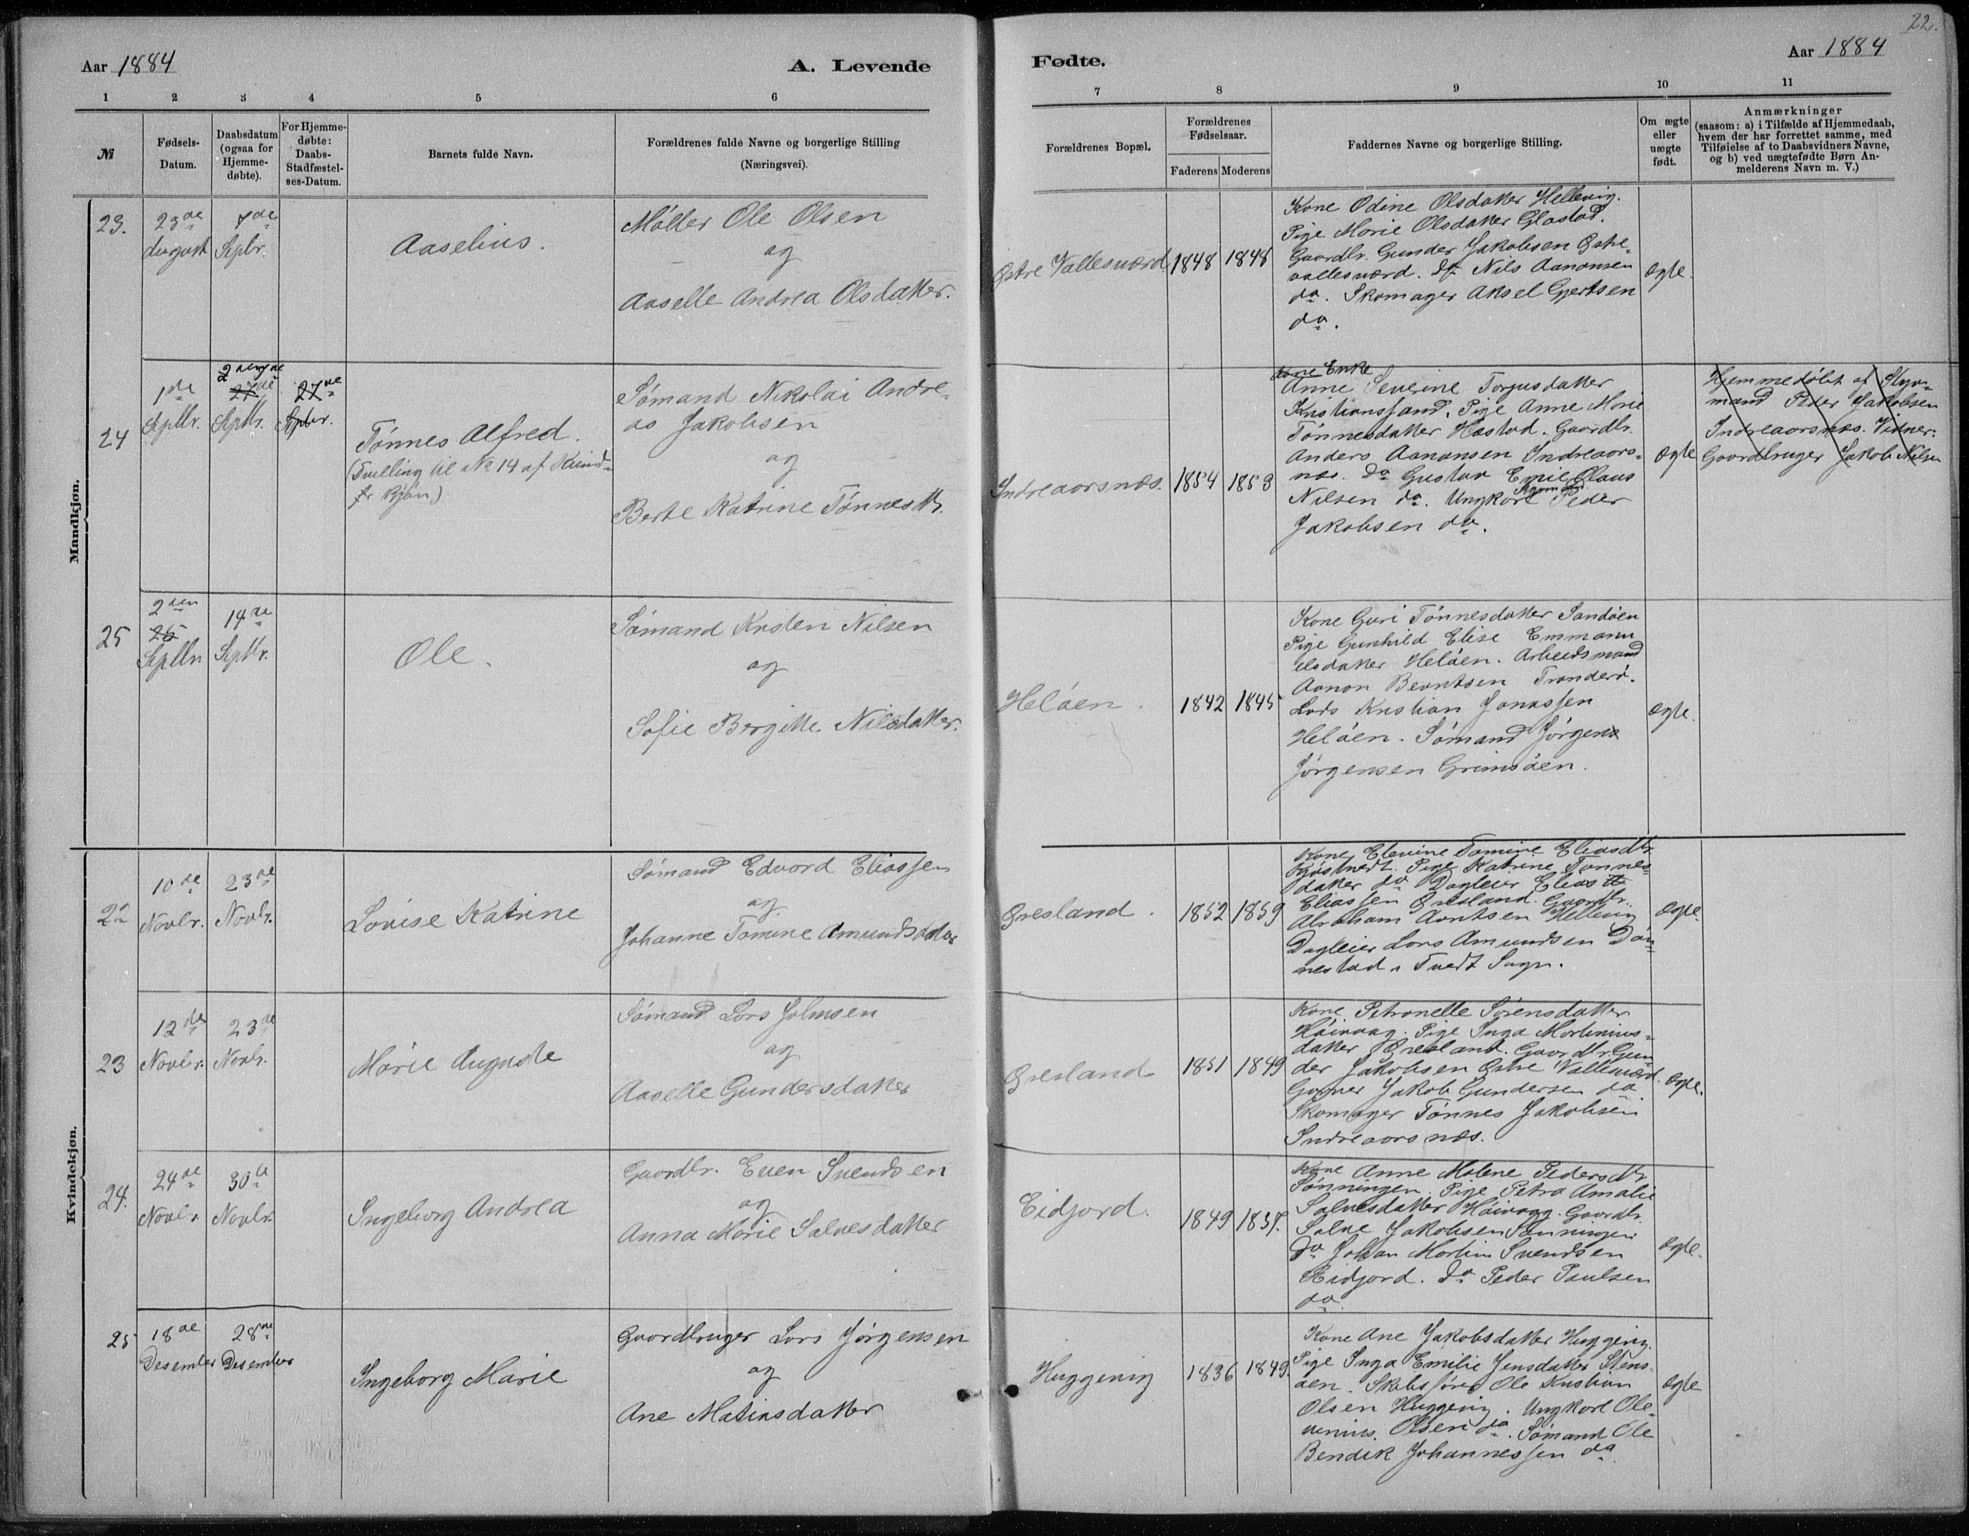 22.
Aar 1884
A. Levende
Fødte.
Aar 1884
1 2 3 4 5 6
7 8 9 10 11
№
Fødsels-
Datum.
Daabsdatum
(ogsaa for
Hjemme-
døbte).
For Hjemme-
døbte:
Daabs-
Stadfæstel-
ses-Datum.
Barnets fulde Navn.
Forældrenes fulde Navne og borgerlige Stilling
(Næringsvei).
Forældrenes Bopæl.
Forældrenes
Fødselsaar.
Faderens Moderens
Faddernes Navne og borgerlige Stilling.
Om ægte
eller
uægte
født.
Anmærkninger
(saasom: a) i Tilfælde af Hjemmedaab,
hvem der har forrettet samme, med
Tilføielse af to Daabsvidners Navne,
og b) ved uægtefødte Børn An-
melderens Navn m. V.)
Mandkjøn.
23.
23de
August
7de
Spbr.
Aaselius.
Møller Ole Olsen
og
Aaselle Andrea Olsdatter.
Østre Vallesværd
1848
1848
Kone Odine Olsdatter Hellevig.
Pige Marie Olsdatter Glastad.
Gaardbr. Gunder Jakobsen Østre
vallesværd. do Nils Aanonsen
do. Skomager Aksel Gjertsen
do.
Ægte.
24
1de
Sptbr.
27de
Sptbr.
27de
Spbr.
Tønnes Alfred.
(Tvilling til № 14 af Kvind-
Sømand Nikolai Andre-
as Jakobsen
og
Berte Katrine Tønnesdtr.
Indreaarsnæs.
1854
1853
Enke
Anne Severine Torjusdatter
Kristianssand. Pige Anne Marie
Tønnesdatter Hæstad. Gaardbr.
Anders Aanonsen Indreaars-
næs. do Gustav Emil Olaus
Nilsen do. Ungkarl Peder
Jakobsen do.
Ægte
Hjemmedøbt af Styr-
mand Peder Jakobsen
Indreaarsnæs. Vidner:
Gaardbruger Jakob Nilsen
25
2den
25
Sptbr
14de
Sptbr.
Ole.
Sømand Kristen Nilsen
og
Sofie Birgitte Nilsdatter.
Heløen.
1842
1845
Kone Guri Tønnesdatter Sandøen
Pige Gunhild Elise Emmanu
elsdatter Heløen. Arbeidsmand
Aanon Berntsen Tronderø.
Lods Kristian Jonassen
Heløen. Sømand Jørgen
Jørgensen Grimsøen.
Ægte.
Kvindekjøn.
22
10de
Novbr.
23de
Novbr.
Lovise Katrine
Sømand Edvard Eliassen
og
Johanne Tomine Amundsdatter
Øresland.
1852
1859
Kone Elevine Tomine Eliasdtr
Pige Katrine Tønnes-
datter do Dagleier Elias
Eliassen Øresland. Gaardbr.
Abraham Aantsen Hellevig
Dagleier Lars Amundsen Døn-
nestad i Tvedt Sogn.
Ægte.
23
12de
Novbr.
23de
Novbr.
Marie Auguste
Sømand Lars Johnsen
og
Aaselle Gundersdatter
Øresland
1851
1849
Kone Petronelle Sørensdatter
Høivaag. Pige Inga Martinius-
datter Øresland. Gaardbr. Gun-
der Jakobsen Østre Vallesværd.
Jakob Gundersen do
Skomager Tønnes Jakobsen
Indreaarsnæs.
Ægte.
24.
24de
Novbr
30te
Novbr.
Ingeborg Andrea
Gaardbr. Even Svendsen
og
Anna Marie Salvesdatter
Eidjord.
1849
Kone Anne Malene Pedersdtr
Sønningen. Pige Petra Amalie
Salvesdatter Høivaag. Gaardbr.
Salve Jakobsen Sønningen
do Johan Martin Svendsen
Eidjord. do Peder Paulsen
do
Ægte.
25
18de
Desember
28de
Desember
Ingeborg Marie
Gaardbruger Lars Jørgensen
og
Ane Matiasdatter
Huggevig
1836
1849.
Kone Ane Jakobsdatter Huggevig.
Pige Inga Emilie Jensdatter Stens-
øen. Skibsfører Ole Kristian
Olsen Huggevig. Ungkarl Ole-
vinius Olsen do. Sømand Ole
Bendik Johannessen do
Ægte